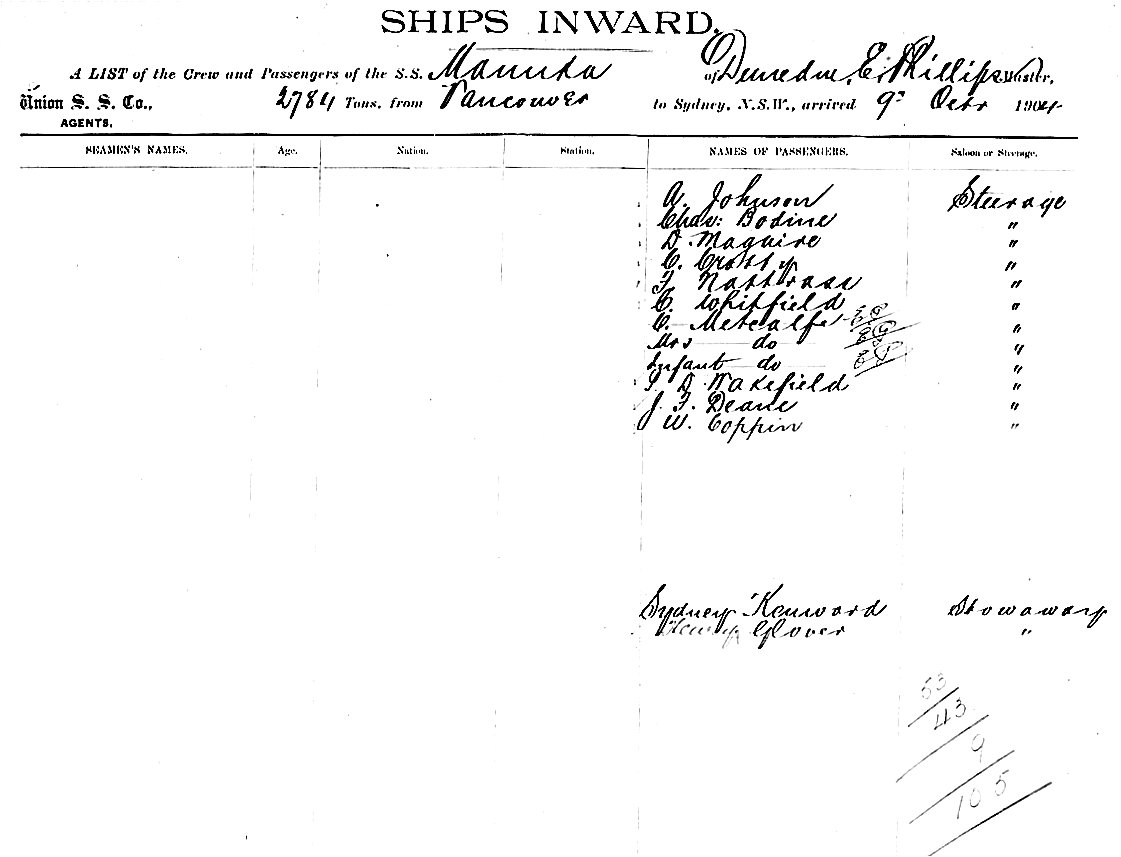 SHIPS INWARD.
A LIST of the Crew and Passengers of the S.S. Manuka of Dunedin, E. Phillips Master,
Union S. S. Co., 2784 Tons, from Vancouver to Sydney, N.S.W., arrived 9th Octr 1904
AGENTS.
SEAMEN'S NAMES. Age. Nation. Station. NAMES OF PASSENGERS. Saloon or Steerage.
A. Johnson Steerage
Chas: Bodine "
D. Maguire "
C. Crossty "
F. Nattrass "
C. Whitfield "
C. Metcalfe "
Mrs do "
Infant do "
D. Wakefield "
J. F. Deane "
W. Coppin "
Sydney Kenward Stowaway
Henry Glover "
53
43
9
105